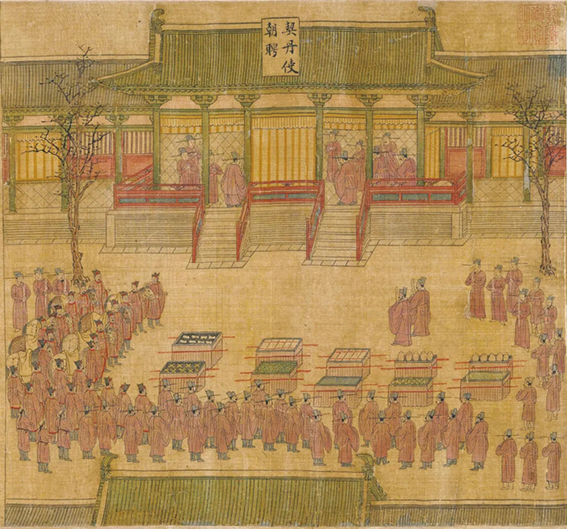 契丹使
朝聘